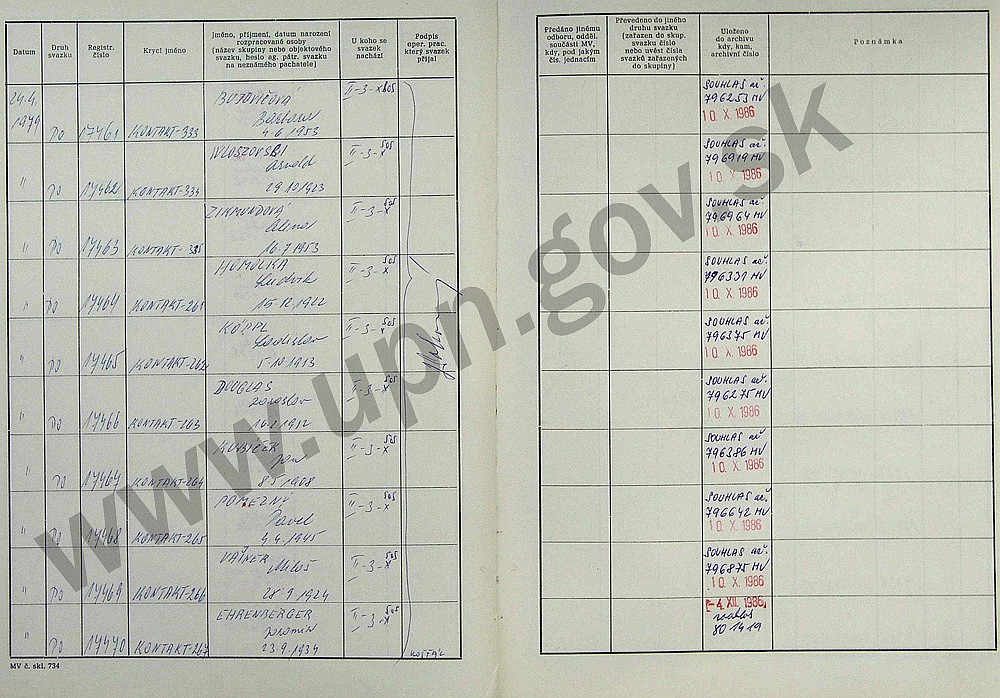 Datum
Druh svazku
Registr. číslo
Krycí jméno
Jméno, příjmení, datum narození
rozpracované osoby
(název skupiny nebo objektového
svazku, heslo ag. pátr. svazku
na neznámého pachatele)
U koho se
svazek
nachází
Podpis
oper. prac.
který svazek
přijal
24.4.
1979 PO 17461 KONTAKT-333
Barbora
4.6.1953
II-3-X 505
" PO 17462 KONTAKT-334
Arnold
29.10.1923
II-3-X 505
" PO 17463 KONTAKT-335
ZIKMUNDOVÁ
Alena
16.7.1953
II-3-X 505
" PO 17464 KONTAKT-261
HOMOLKA
Ludvík
15.12.1922
II-3-X 505
" PO 17465 KONTAKT-262
KÖPPL
Ladislav
5.10.1913
II-3-X 505
" PO 17466 KONTAKT-263
DOUGLAS
Jaroslav
1912
II-3-X 505
" PO 17467 KONTAKT-264
KUBÍČEK
1908
II-3-X 505
" PO 17468 KONTAKT-265
POMEZNÝ
Pavel
4.4.1945
II-3-X 505
" PO 17469 KONTAKT-266
VAJNER
Miloš
1924
II-3-X 505
" PO 17470 KONTAKT-267
EHRENBERGER
Jaromír
23.9.1934
II-3-X 505
KOŠŤÁL
MV č. skl. 734
Předáno jinému
odboru, odděl.
součásti MV,
kdy, pod jakým
čís. jednacím
Převedeno do jiného
druhu svazku
(zařazen do skup.
svazku číslo
nebo uvést čísla
svazků zařazených
do skupiny)
Uloženo
do archivu
kdy, kam,
archivní číslo
Poznámka
SOUHLAS ač.
796253 MV
10. X. 1986
SOUHLAS ač.
796919 MV
10. X. 1986
SOUHLAS ač.
796964 MV
10. X. 1986
SOUHLAS ač.
796331 MV
10. X. 1986
SOUHLAS ač.
796375 MV
10. X. 1986
SOUHLAS ač.
796275 MV
10. X. 1986
SOUHLAS ač.
796386 MV
10. X. 1986
SOUHLAS ač.
796642 MV
10. X. 1986
SOUHLAS ač.
796875 MV
10. X. 1986
-4. XII. 1986
souhlas
801419
www.upn.gov.sk